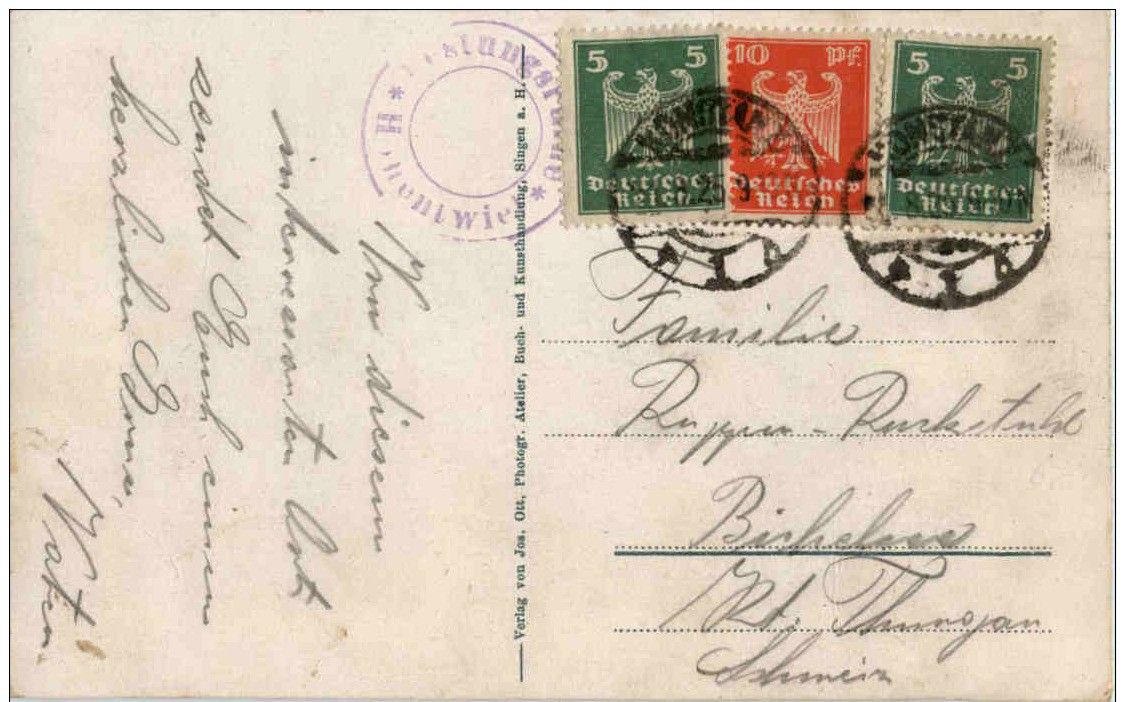 Von diesem
interessanten Ort
sendet Euch einen
herzlichen Gruss,
Vater.
Festungsruine
* Hohentwiel *
Verlag von Jos. Ott, Photogr. Atelier, Buch- und Kunsthandlung, Singen a. H.
5 5
Deutsches
Reich
10 Pf.
Deutsches
Reich
5 5
Deutsches
Reich
KONSTANZ
KONSTANZ
Familie
Ruckstuhl
Bichelsee
Kt. Thurgau
Schweiz